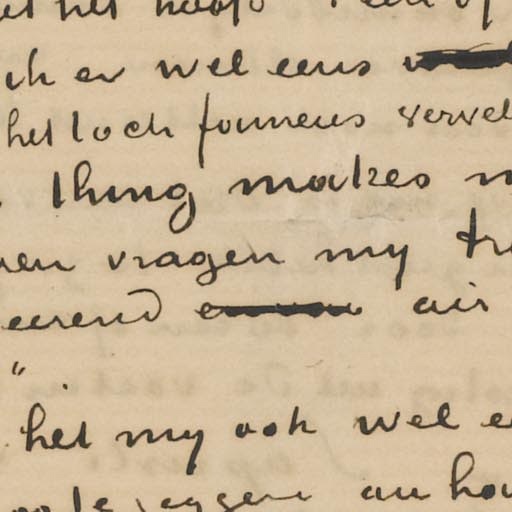 het
ik er wel eens
het toch fameus vervel
thing makes m
en vragen my tr
eerend air
"
het my ook wel e
te zeggen au hou